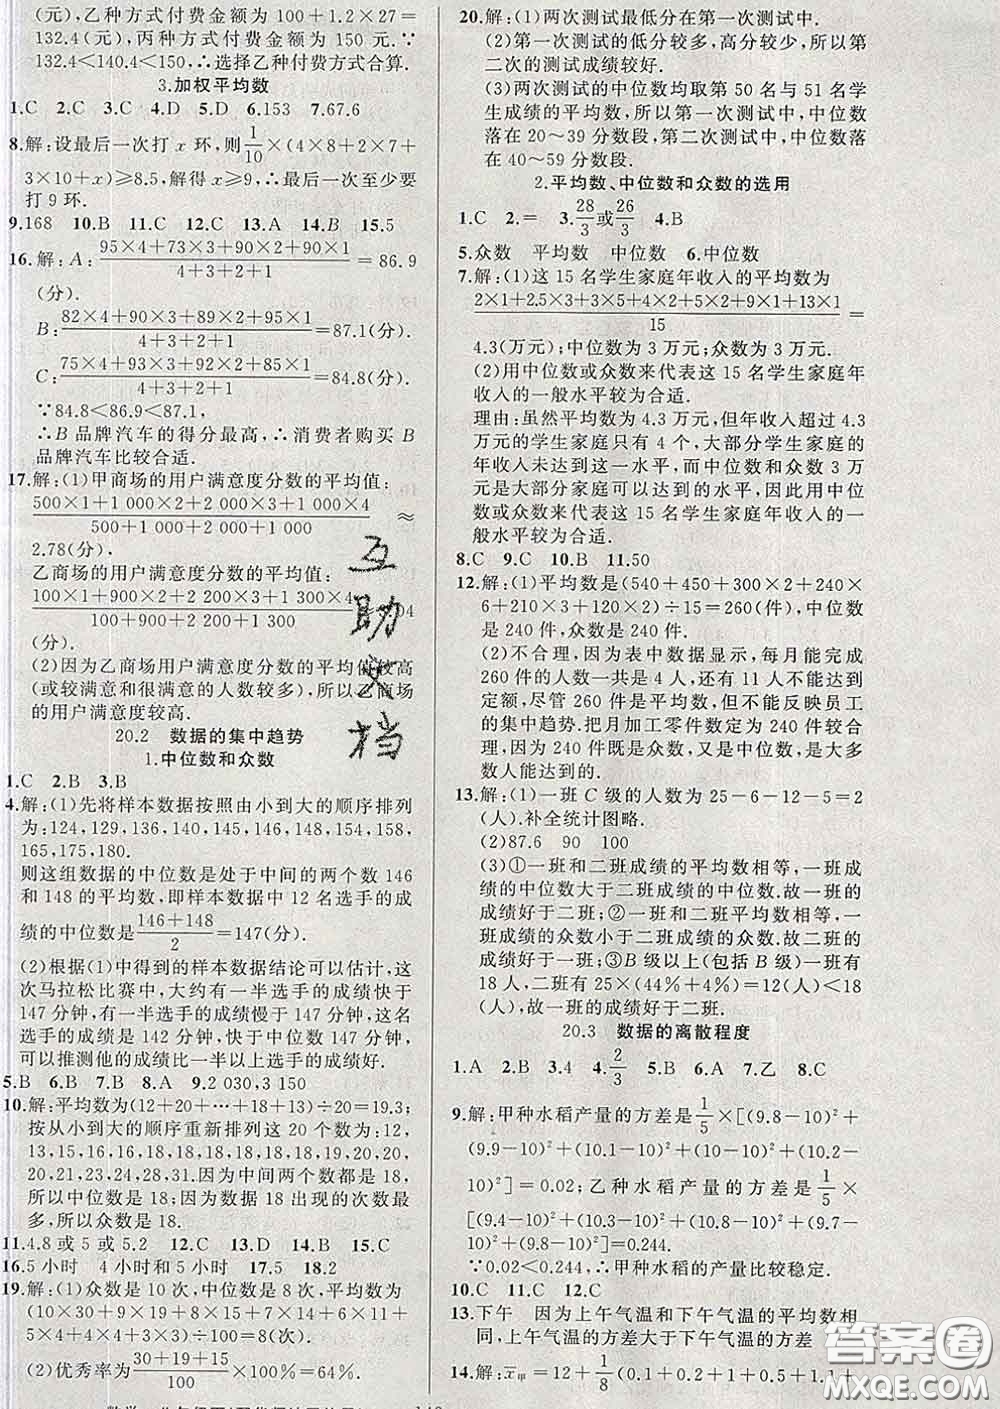 (元),乙种方式付费金额为100+1.2×27=
132.4(元),丙种方式付费金额为150元.∵
132.4<140.4<150,∴选择乙种付费方式合算.
3.加权平均数
1.C 2.C 3.C 4.D 5.D 6.153 7.67.6
8.解:设最后一次打x环,则1/10×(4×8+2×7+
3×10+x)≥8.5,解得x≥9.∴最后一次至少要
打9环.
9.168 10.B 11.C 12.C 13.A 14.B 15.5
16.解:A:(95×4+73×3+90×2+90×1)/(4+3+2+1)=86.9
(分).
B:(82×4+90×3+89×2+95×1)/(4+3+2+1)=87.1(分).
C:(75×4+93×3+92×2+92×1)/(4+3+2+1)=84.8(分).
∵84.8<86.9<87.1,
∴B品牌汽车的得分最高,∴消费者购买B
品牌汽车比较合适.
17.解:(1)甲商场的用户满意度分数的平均值:
(500×1+1 000×2+2 000×3+1 000×4)/(500+1 000+2 000+1 000)≈
2.78(分),
乙商场的用户满意度分数的平均值:
(100×1+900×2+2 200×3+1 300×4)/(100+900+2 200+1 300)
(分).
(2)因为乙商场用户满意度分数的平均值较高
(或较满意和很满意的人数较多),所以乙商场
的用户满意度较高.
20.2 数据的集中趋势
1.中位数和众数
1.C 2.B 3.B
4.解:(1)先将样本数据按照由小到大的顺序排列
为:124,129,136,140,145,146,148,154,158,
165,175,180.
则这组数据的中位数是处于中间的两个数146
和148的平均数,即样本数据中12名选手的成
绩的中位数是(146+148)/2=147(分).
(2)根据(1)中得到的样本数据结论可以估计,这
次马拉松比赛中,大约有一半选手的成绩快于
147分钟,有一半选手的成绩慢于147分钟,这名
选手的成绩是142分钟,快于中位数147分钟,
可以推测他的成绩比一半以上选手的成绩好.
5.B 6.B 7.B 8.A 9.2 030,3 150
10.解:平均数为(12+20+…+18+13)÷20=19.3;
按从小到大的顺序重新排列这20个数为:12,
13,15,16,16,17,18,18,18,18,18,19,20,20,
20,21,23,24,28,31.因为中间两个数都是18,
所以中位数是18;因为数据18出现的次数最
多,所以众数是18.
11.4.8或5或5.2 12.C 13.D 14.B 15.C
16.5小时 4小时和5小时 17.5 18.2
19.解:(1)众数是10次,中位数是8次,平均数为
(10×30+9×19+8×15+7×14+6×11+
5×4+4×4+3×3)÷100=8(次).
(2)优秀率为(30+19+15)/100×100%=64%.
20.解:(1)两次测试最低分在第一次测试中.
(2)第一次测试的低分较多,高分较少,所以第
二次的测试成绩较好.
(3)两次测试的中位数均取第50名与51名学
生成绩的平均数,所以第一次测试中,中位数
落在20～39分数段,第二次测试中,中位数落
在40～59分数段.
2.平均数、中位数和众数的选用
1.C 2.= 3.28/3或26/3 4.B
5.众数 平均数 中位数 6.中位数
7.解:(1)这15名学生家庭年收入的平均数为
(2×1+2.5×3+3×5+4×2+5×2+9×1+13×1)/15=
4.3(万元);中位数为3万元;众数为3万元.
(2)用中位数或众数来代表这15名学生家庭年
收入的一般水平较为合适.
理由:虽然平均数为4.3万元,但年收入超过4.3
万元的学生家庭只有4个,大部分学生家庭的
年收入未达到这一水平,而中位数和众数3万
元是大部分家庭可以达到的水平,因此用中位
数或众数来代表这15名学生家庭年收入的一
般水平较为合适.
8.C 9.C 10.B 11.50
12.解:(1)平均数是(540+450+300×2+240×
6+210×3+120×2)÷15=260(件),中位数
是240件,众数是240件.
(2)不合理,因为表中数据显示,每月能完成
260件的人数一共是4人,还有11人不能达到
定额,尽管260件是平均数,但不能反映员工
的集中趋势.把月加工零件数定为240件较合
适,因为240件既是众数,又是中位数,是多
数人能达到的.
13.解:(1)一班C级的人数为25-6-12-5=2
(人).补全统计图略.
(2)87.6 90 100
(3)①一班和二班成绩的平均数相等,一班成
绩的中位数大于二班成绩的中位数.故一班的
成绩好于二班;②一班和二班平均数相等,一
班成绩的众数小于二班成绩的众数.故二班成
绩好于一班;③B级以上(包括B级)一班有
18人,二班有25×(44%+4%)=12(人)<18
(人),故一班的成绩好于二班.
20.3 数据的离散程度
1.A 2.B 3.4 4.2/3 5.B 6.A 7.乙 8.C
9.解:甲种水稻产量的方差是1/5×[(9.8-10)²+
(9.9-10)²+(10.1-10)²+(10-10)²+(10.2-
10)²]=0.02;乙种水稻产量的方差是1/5×
[(9.4-10)²+(10.3-10)²+(10.8-10)²+
(9.7-10)²+(9.8-10)²]=0.244.
∵0.02<0.244,∴甲种水稻的产量比较稳定.
10.C 11.C 12.C
13.下午 因为上午气温和下午气温的平均数相
同,上午气温的方差大于下午气温的方差
14.解:x̄甲=12+1/8(0.1+0.2+1+1+0.5
互
助
文
档
答案圈
MXQE.COM